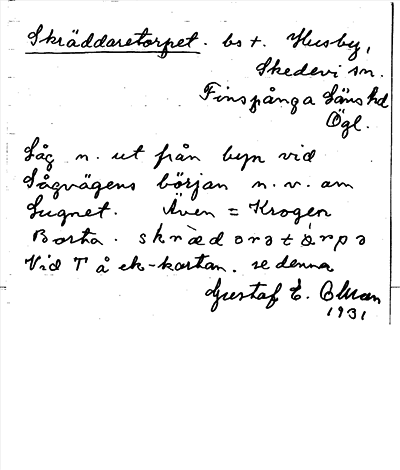 Skräddaretorpet. bs t. Husby,
Skedevi sn.
Finspånga läns hd
Ögl.
Låg n. ut från byn vid
Sågvägens början n. v. om
Lugnet. Även = Krogen
Borta. skrædarətårpə
Vid T å ek-kartan. se denna
Gustaf E. Ollman
1931